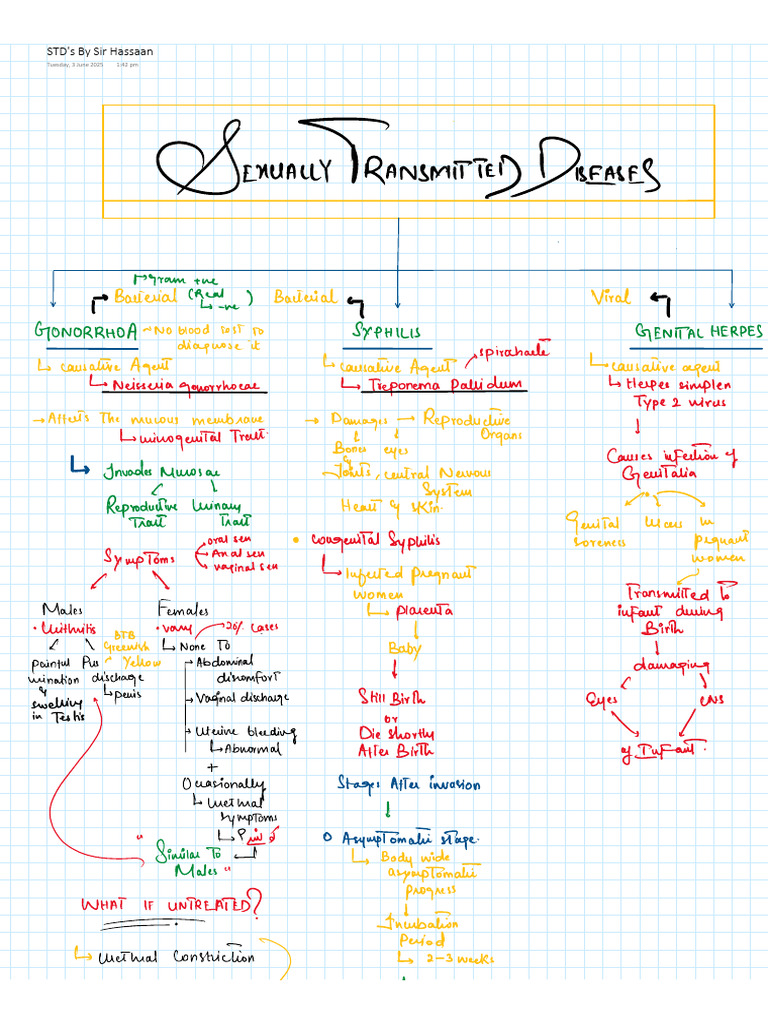 STD's By Sir Hassaan
Tuesday, 3 June 2025 1:42 pm
SEXUALLY TRANSMITTED DISEASES
Gram +ve
Bacterial (Real -ve)
GONORRHOA
No blood test to
diagnose it
Causative Agent
Neisseria gonorrhoeae
Affects The mucous membrane
Urinogenital Tract.
Invades Mucosae
Reproductive Urinary
Tract Tract
Symptoms
oral sex
Anal sex
vaginal sex
Males
• Urithritis
painful
urination
&
swelling
in Testis
Pus
discharge
penis
BTB
Greenish
Yellow
Females
• vary
20% cases
None To
Abdominal
discomfort
Vaginal discharge
Uterine bleeding
Abnormal
+
Occasionally
Urethral
symptoms
"Similar To
Males"
WHAT IF UNTREATED?
Urethral Constriction
Bacterial
SYPHILIS
Causative Agent
spirochaete
Treponema Pallidum
Damages Reproductive
Organs
Bones eyes
&
Joints, central Nervous
System
Heart & skin.
• Congenital Syphilis
Infected Pregnant
women
Placenta
Baby
Still Birth
or
Die shortly
After Birth
Stages After invasion
O Asymptomatic stage.
Body wide
asymptomatic
progress
Incubation
Period
2-3 weeks
Viral
GENITAL HERPES
Causative agent
Herpes simplex
Type 2 virus
Causes infection of
Genitalia
Genital
soreness
Ulcers in
pregnant
women
Transmitted To
infant during
Birth
damaging
Eyes CNS
of Infant.